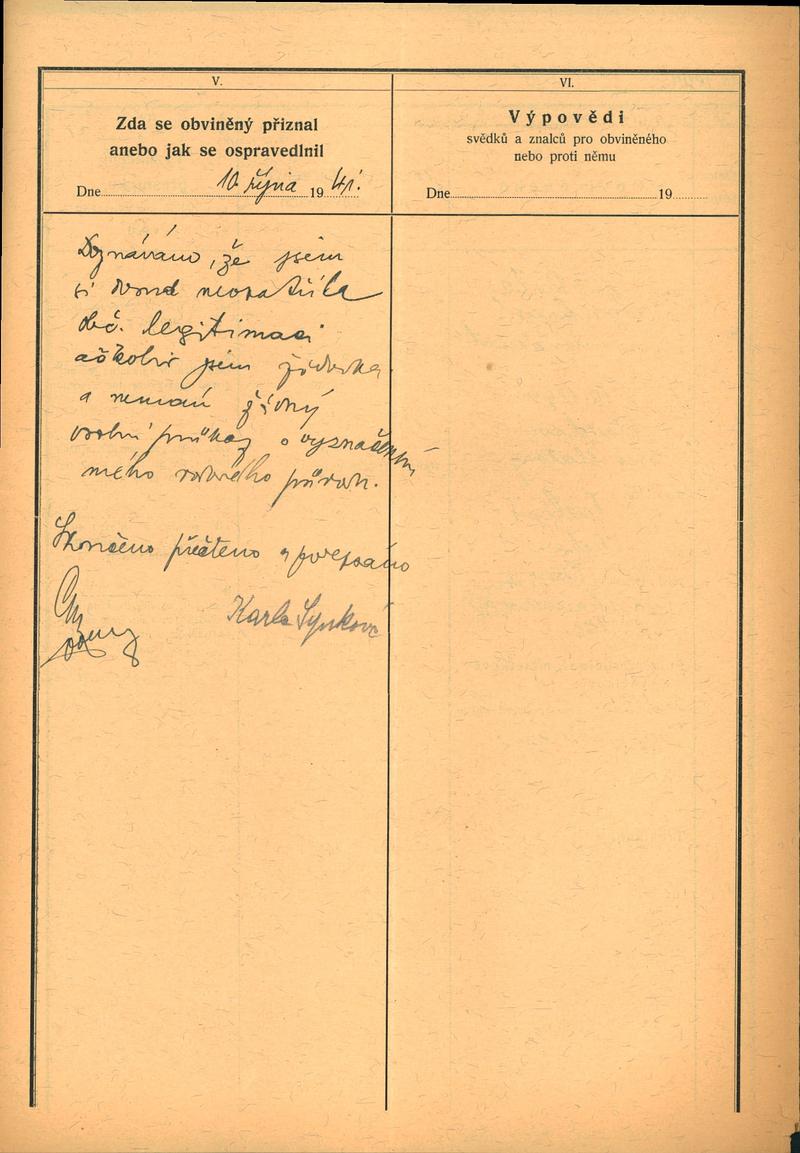 V.
Zda se obviněný přiznal
anebo jak se ospravedlnil
Dne 10. října 19 41.
Doznávám, že jsem
si dosud neopatřila
obč. legitimaci
ačkoliv jsem židovka
a nemám žádný
osobní průkaz o vyznačení
mého rasového původu.
Skončeno přečteno a podepsáno
Karla Synková
VI.
Výpovědi
svědků a znalců pro obviněného
nebo proti němu
Dne 19